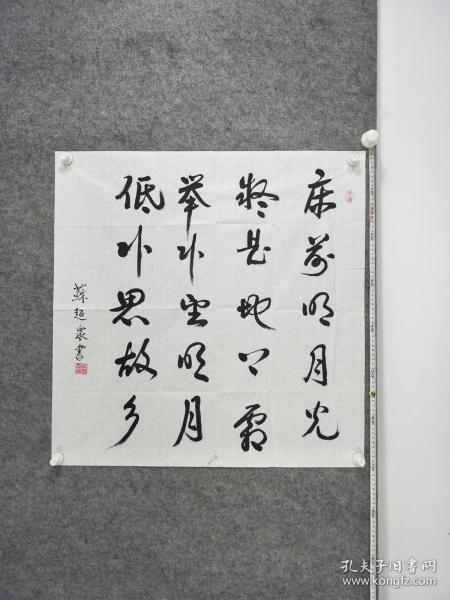 床前明月光
疑是地上霜
举头望明月
低头思故乡
蘇超泉書
孔夫子旧书网
www.kongfz.com